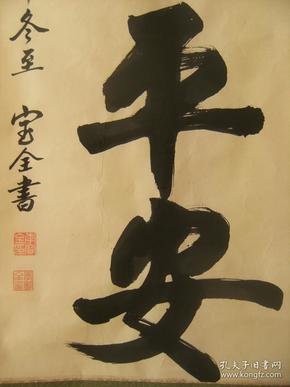 平安
冬至 宝全書
孔夫子旧书网
www.kongfz.com